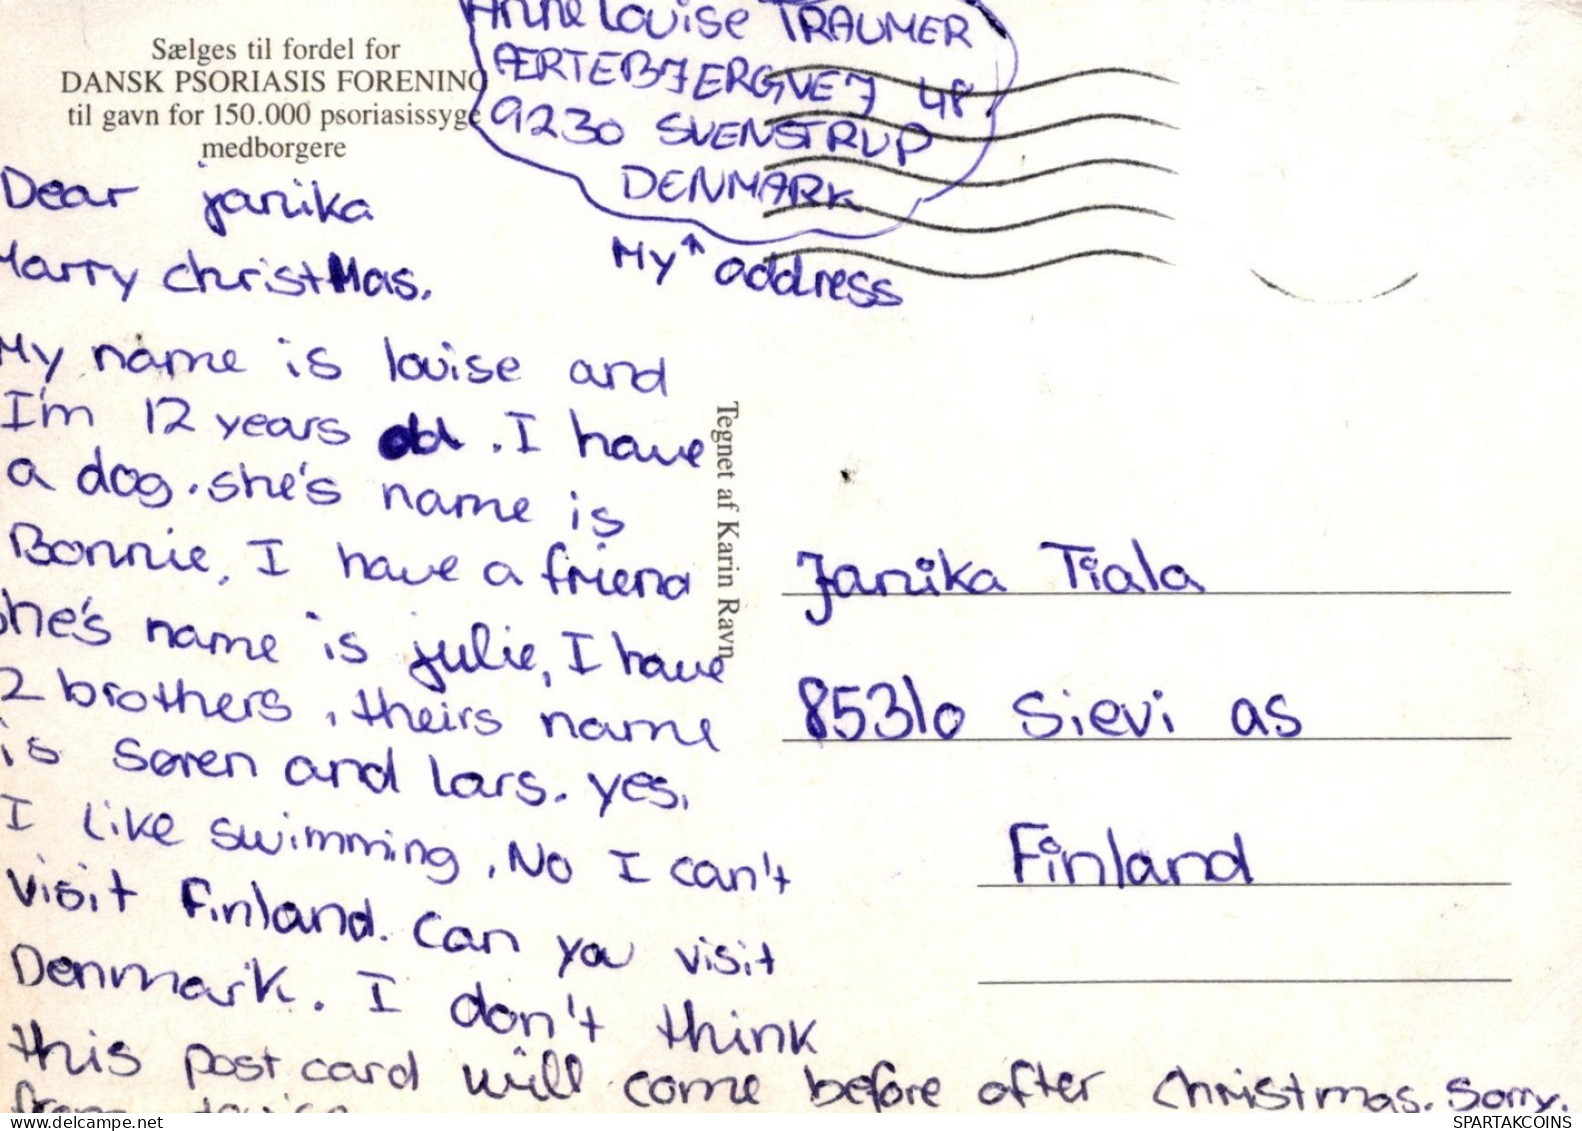 Sælges til fordel for
DANSK PSORIASIS FORENING
til gavn for 150.000 psoriasissyge
medborgere
Anne Louise TRAUMER
ÆRTEBJERGVEJ 48
9230 SVENSTRUP
DENMARK
My ↑ address
Dear janika
Marry christMas.
My name is louise and
I'm 12 years old. I have
a dog. she's name is
Bonnie, I have a friend
she's name is julie, I have
2 brothers, theirs name
is Søren and Lars. yes,
I like swimming, No I can't
visit Finland. Can you visit
Denmark. I don't think
this post card will come before after Christmas. Sorry.
from
Tegnet af Karin Ravn
Janika Tiala
85310 Sievi as
Finland
delcampe.net
SPARTAKCOINS